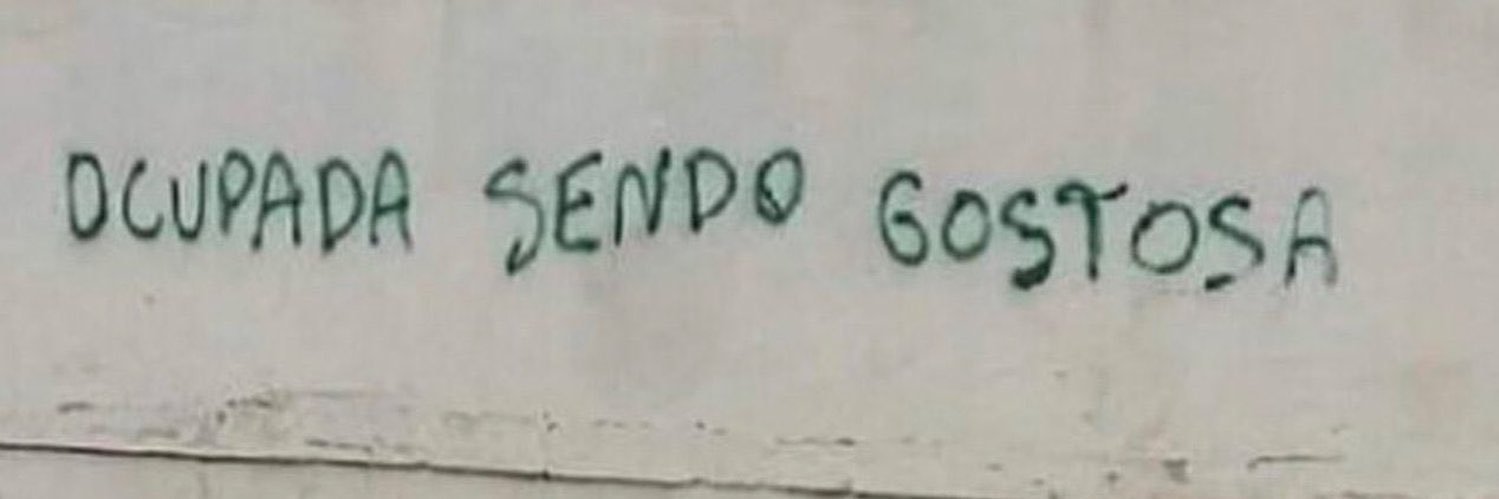 OCUPADA SENDO GOSTOSA